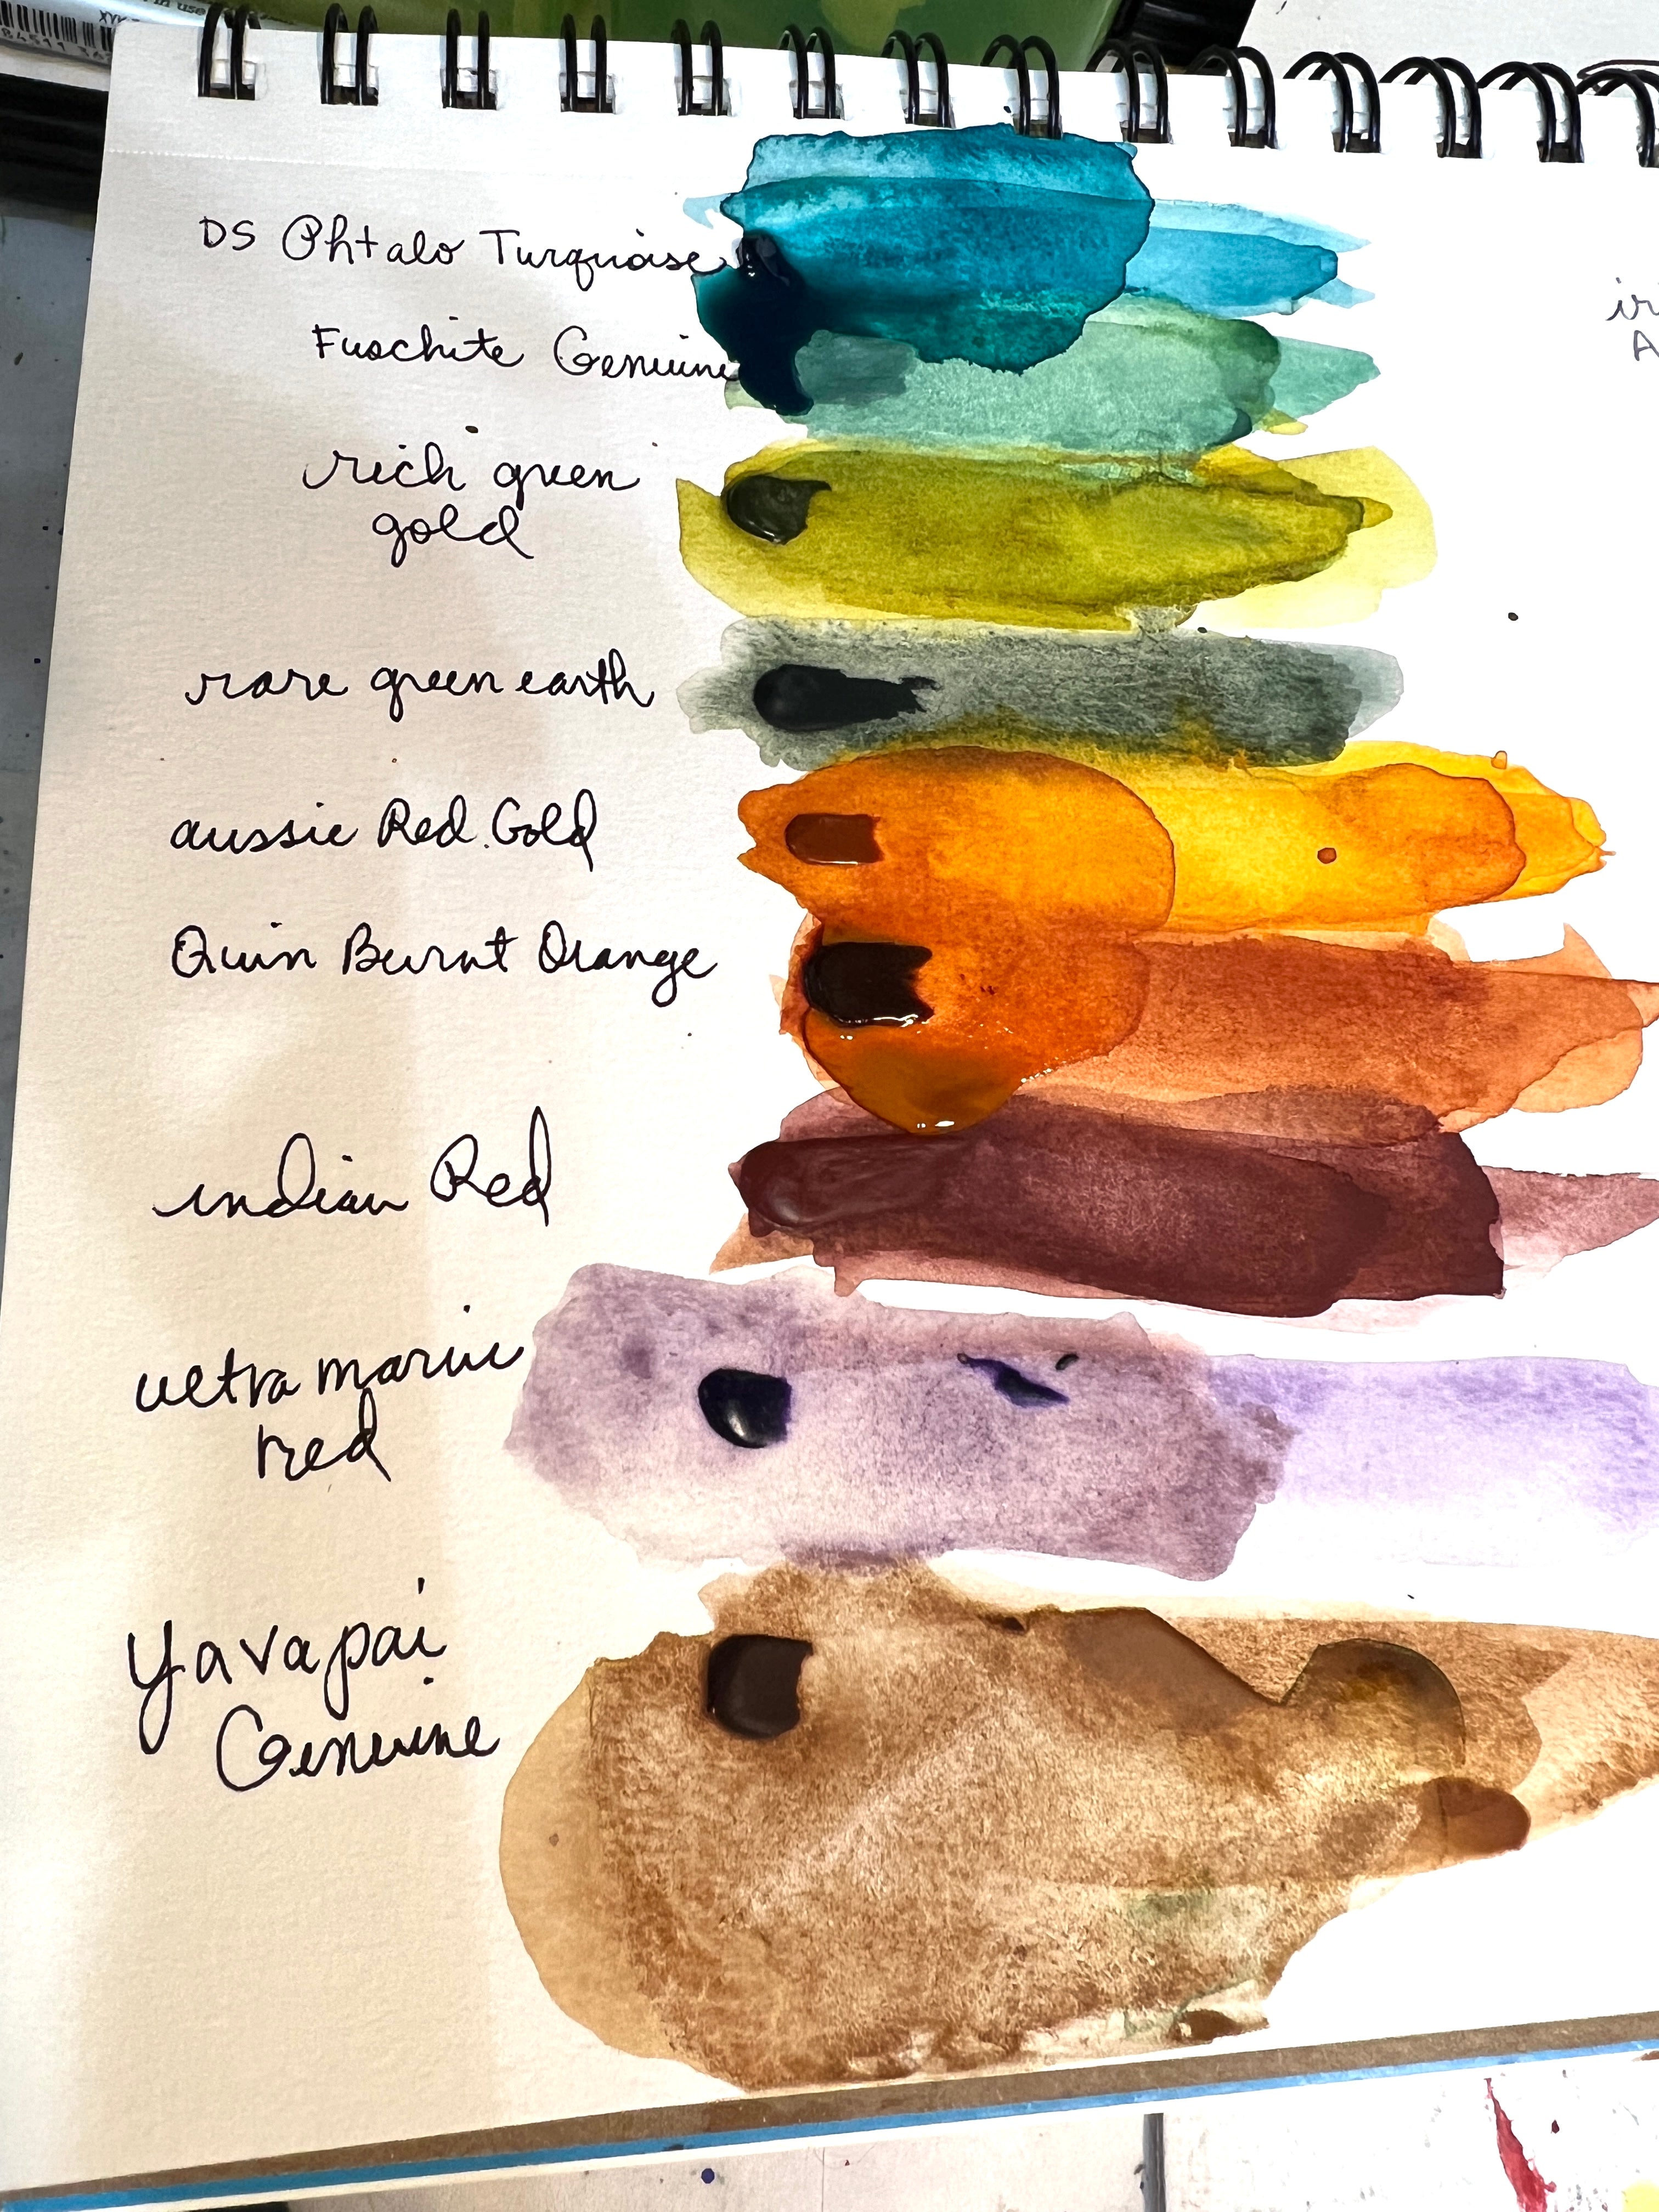 in use
DS Phtalo Turquoise
Fuschite Genuine
rich green
gold
rare green earth
aussie Red Gold
Quin Burnt Orange
indian Red
ultra marine
red
Yavapai
Genuine